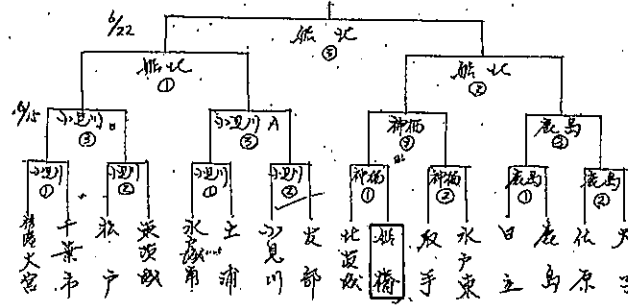 6/22
船北
⑤
船北
①
船北
②
6/15
小見川B
③
小見川A
③
神栖
③
鹿島
③
小見川
①
小見川
②
小見川
①
小見川
②
神栖
①
神栖
②
鹿島
①
鹿島
②
千葉市
松戸
茨城
土浦
小見川
友部
北茨城
船橋
取手
水戸東
日立
鹿島
佐原